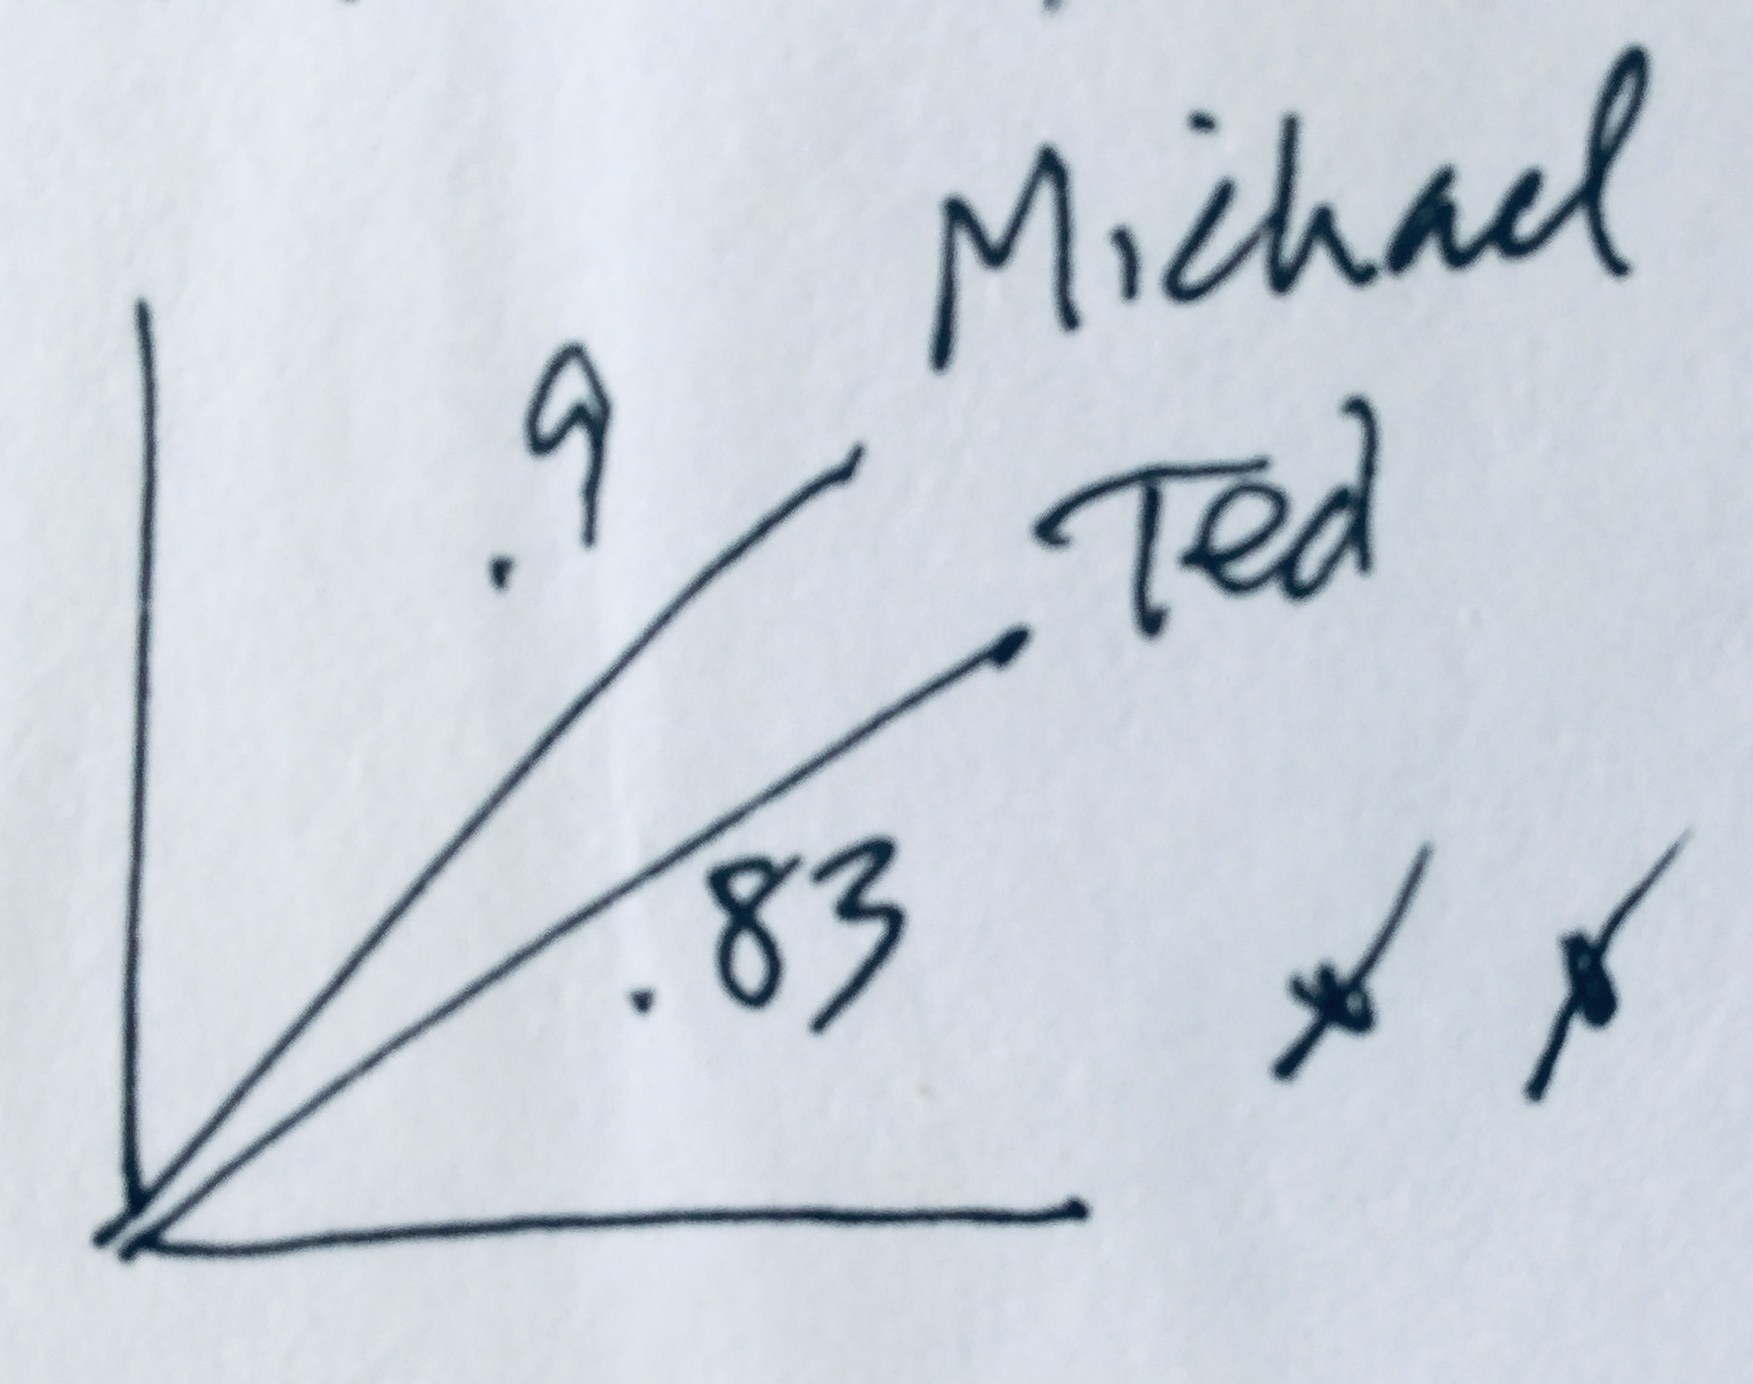 Michael
.9
Ted
.83